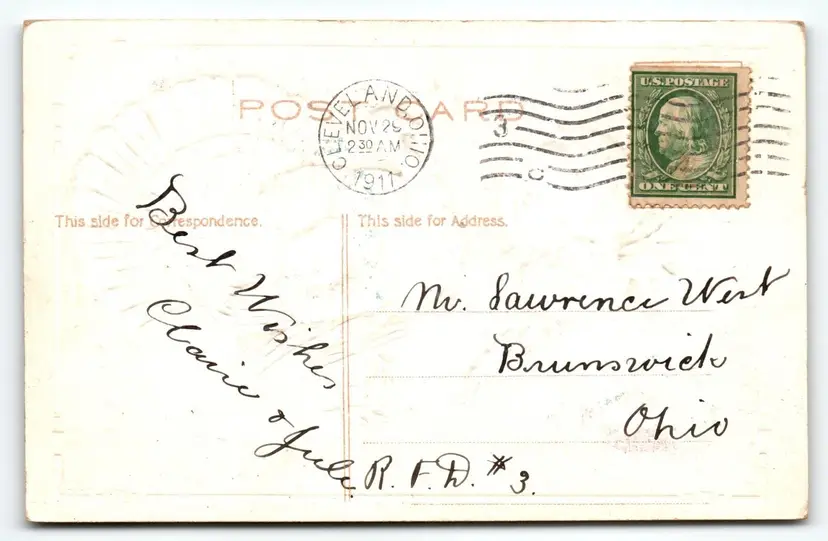 POST CARD
CLEVELAND, OHIO.
NOV 2
2 30 AM
1911
3
U.S. POSTAGE
ONE CENT
This side for Correspondence.
This side for Address.
Best Wishes
Claire & Jule.
Mr. Lawrence West
Brunswick
Ohio
R. F. D. # 3.